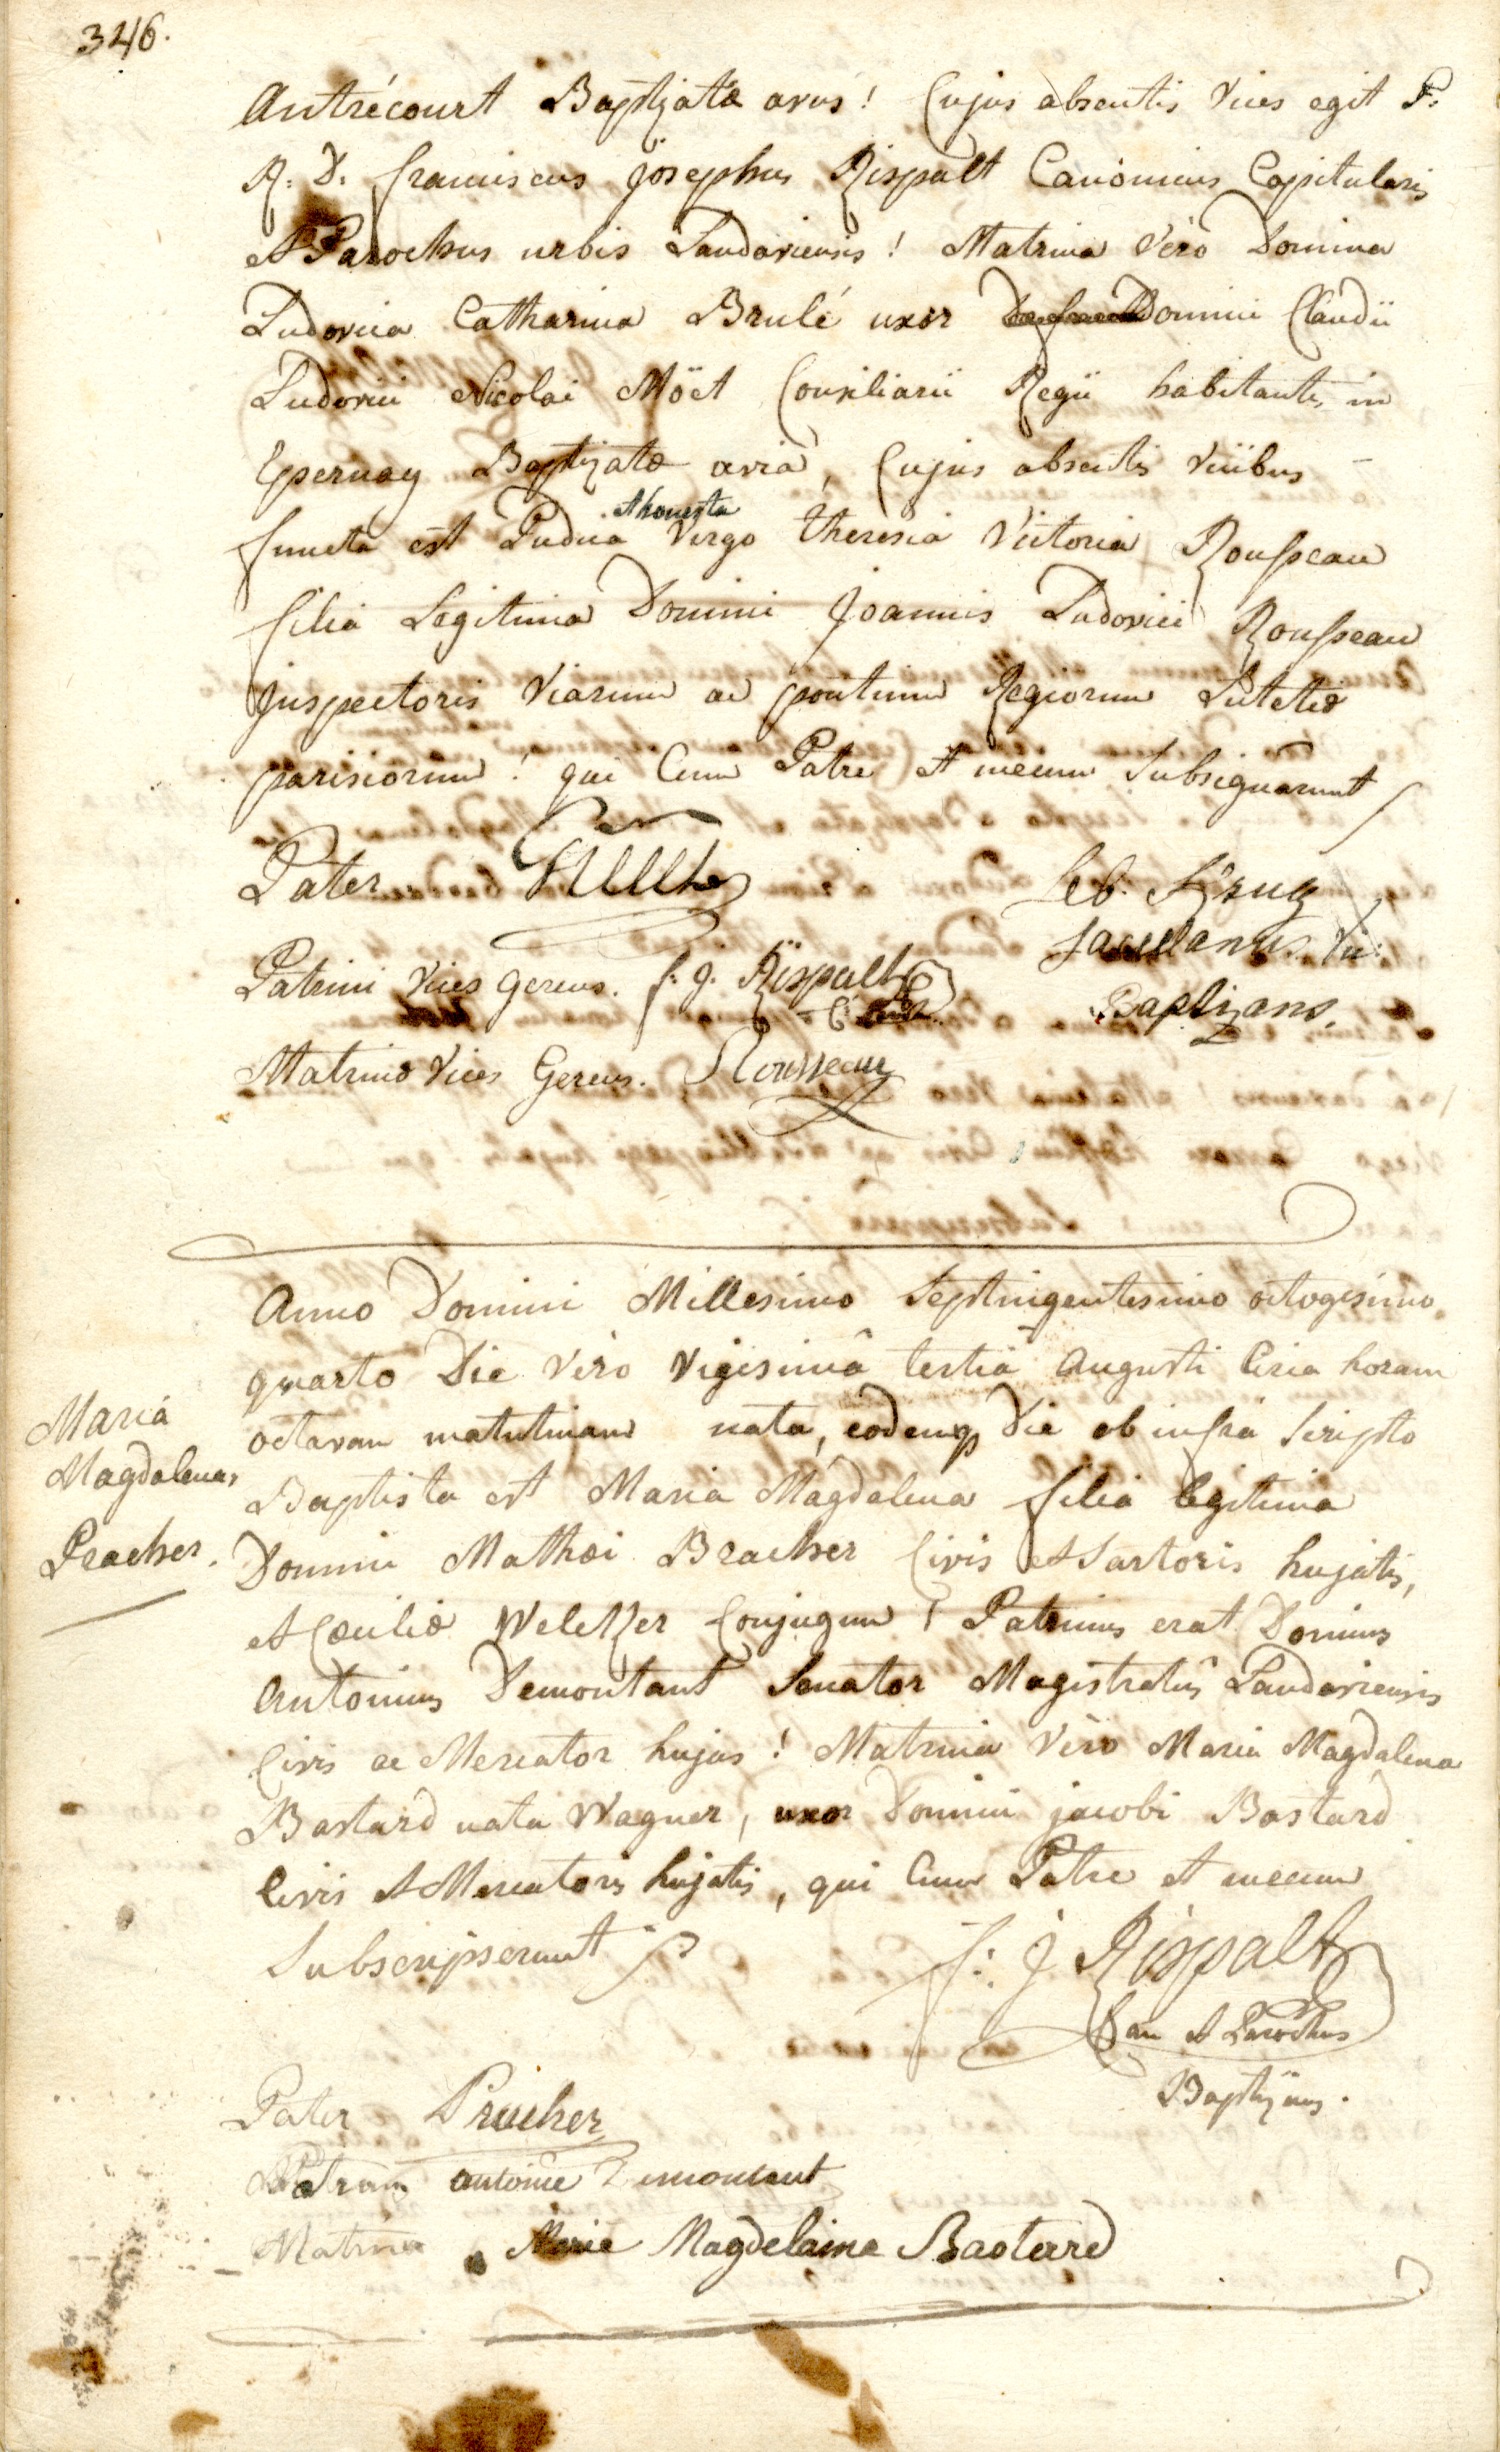 346.
Antrécourt Baptizatæ avus! Cujus absentis Vices egit P.
R. D. franciscus josephus Rispalt Canonicus Capitularis
et Parochus urbis Landaviensis! Matrina Vèro Domina
Ludovica Catharina Brulé uxor Domini Claudii
Ludovici Nicolai Möet Consiliarii Regii habitantis in
Epernay Baptizatæ avia, Cujus absentis Vicibus
functa est Pudica et honesta Virgo theresia Victoria Rousseau
filia Legitima Domini Joannis Ludovici Rousseau
Juspectoris Viarum ac pontium Regiorum Lutetiæ
parisiorum! qui Cum Patre et mecum Subsignarunt
Pater.
Seb. Krug
Sacellanus Vic:
Baptizans.
Patrini Vices gerens. f. j. Rispalt
Matrinæ Vices Gerens. Rousseau
Anno Domini Millesimo Septingentesimo octogesimo
quarto Die Vèro Vigesimâ tertiâ Augusti Circa horam
octavam matutinam nata, eodemq Die ab infra Scripto
Baptista est Maria Magdalena filia legitima
Maria
Magdalena
Pracher.
Domini Mathæi Bracher Civis et Sartoris hujatis,
et Cæciliæ Weltzer Conjugum! Patrinus erat Dominus
Antonius Demontant Senator Magistratûs Landaviensis
Civis ac Mercator hujas! Matrina Vèro Maria Magdalena
Bastard nata Wagner, uxor Domini jacobi Bastard
Civis et Mercatoris hujatis, qui Cum Patre et mecum
Subscripserunt
f: j Rispalt
Can et Parochus
Baptizans.
Pater Pracher
Patrinus antoine Demontant
Matrina Marie Magdelaine Bastard